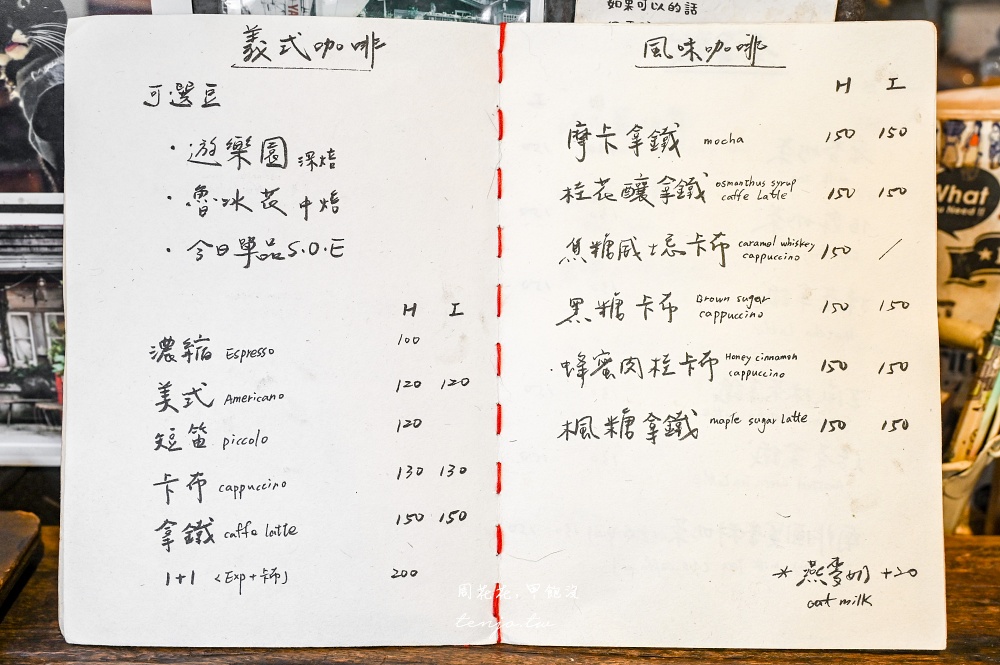 如果可以的話
義式咖啡
可選豆
・遊樂園 深焙
・魯冰花 中焙
・今日單品 S.O.E
H I
濃縮 Espresso 100
美式 Americano 120 120
短笛 piccolo 120
卡布 cappuccino 130 130
拿鐵 caffe latte 150 150
1+1 (Exp+卡布) 200
風味咖啡
H I
摩卡拿鐵 mocha 150 150
桂花釀拿鐵 osmanthus syrup caffe latte 150 150
焦糖威士忌卡布 caramel whiskey cappuccino 150 /
黑糖卡布 Brown sugar cappuccino 150 150
・蜂蜜肉桂卡布 Honey cinnamon cappuccino 150 150
楓糖拿鐵 maple sugar latte 150 150
* 燕麥奶 +20
oat milk
What
Need it!
周花花，甲飽沒
tenjo.tw